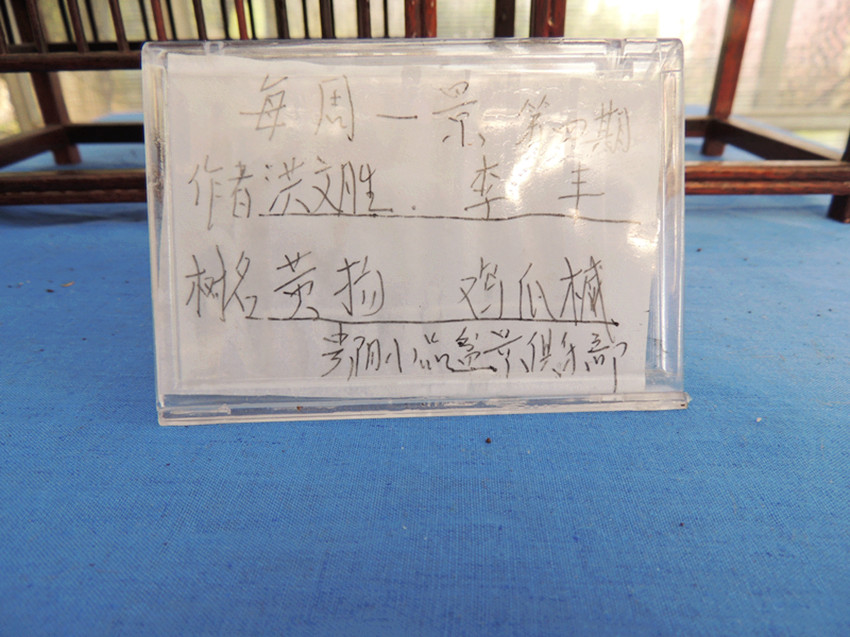 每周一景 第四期
作者洪文胜. 李丰
树名黄杨 鸡爪槭
贵阳小品盆景俱乐部